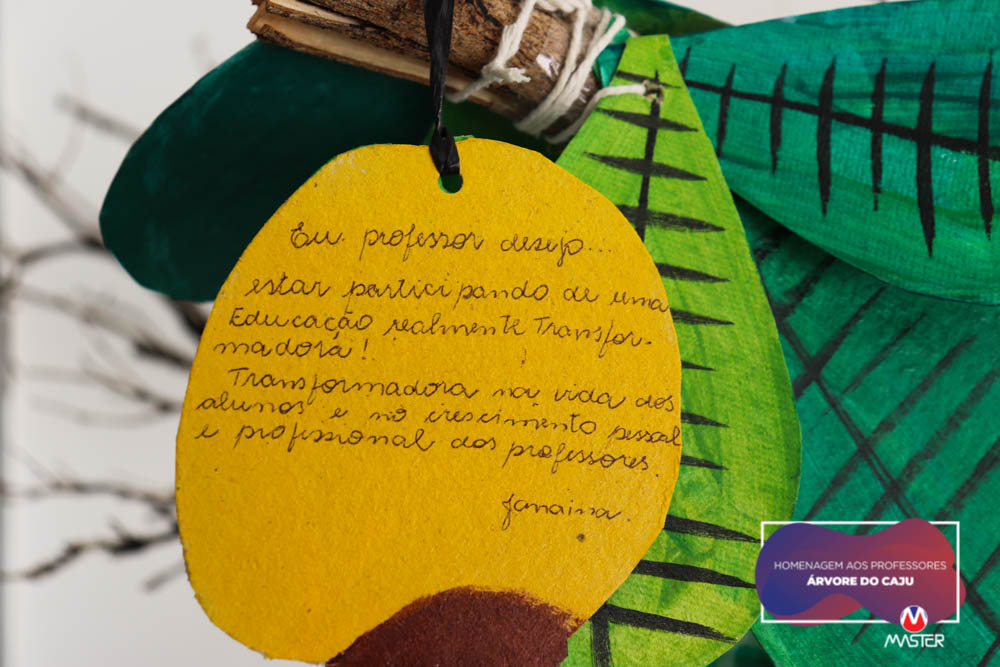 Eu, professor desejo...
estar participando de uma
Educação realmente Transfor-
madora!
Transformadora na vida dos
alunos e no crescimento pessoal
e profissional dos professores.
Janaina.
HOMENAGEM AOS PROFESSORES
ÁRVORE DO CAJU
MASTER